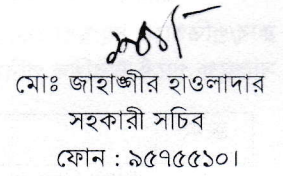 মোঃ জাহাঙ্গীর হাওলাদার
সহকারী সচিব
ফোন : ৯৫৭৫৫১০।